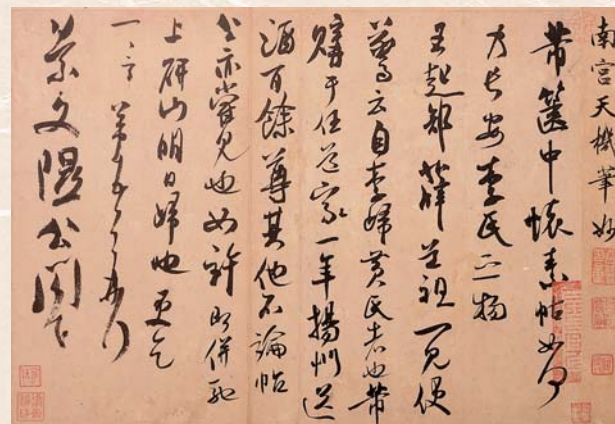 南宫天機筆妙
芾篋中懷素帖如何
乃長安李氏之物
王起部薛道祖一見便
驚云自李歸黃氏者也芾
購于任道家一年揚州送
酒百餘尊其他不論帖
公亦嘗見也如許即併馳
上研山明日歸也更乞
一言芾頓首再拜
景文隰公閣下